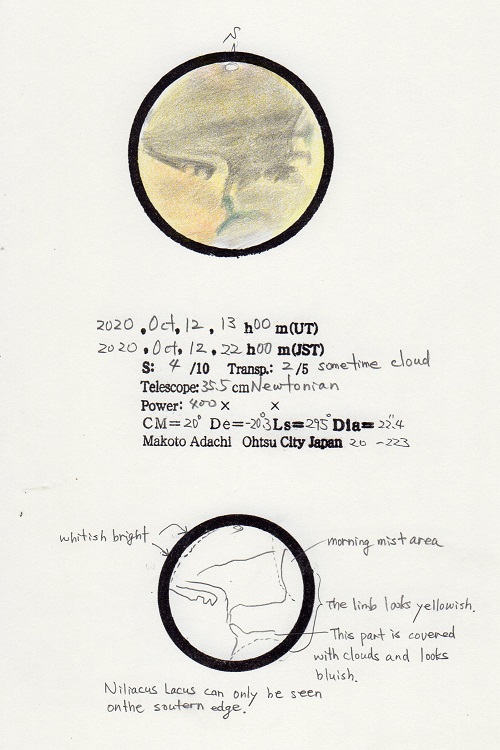 S
2020, Oct, 12, 13 h00 m(UT)
2020, Oct, 12, 22 h00 m(JST)
S: 4 /10 Transp.: 2/5 sometime cloud
Telescope: 35.5 cm Newtonian
Power: 400 × ×
CM=20° De=-20.3 Ls=295° Dia=22".4
Makoto Adachi Ohtsu City Japan 20 -223
whitish bright
morning mist area
the limb looks yellowish.
This part is covered
with clouds and looks
bluish.
Niliacus Lacus can only be seen
onthe soutern edge.